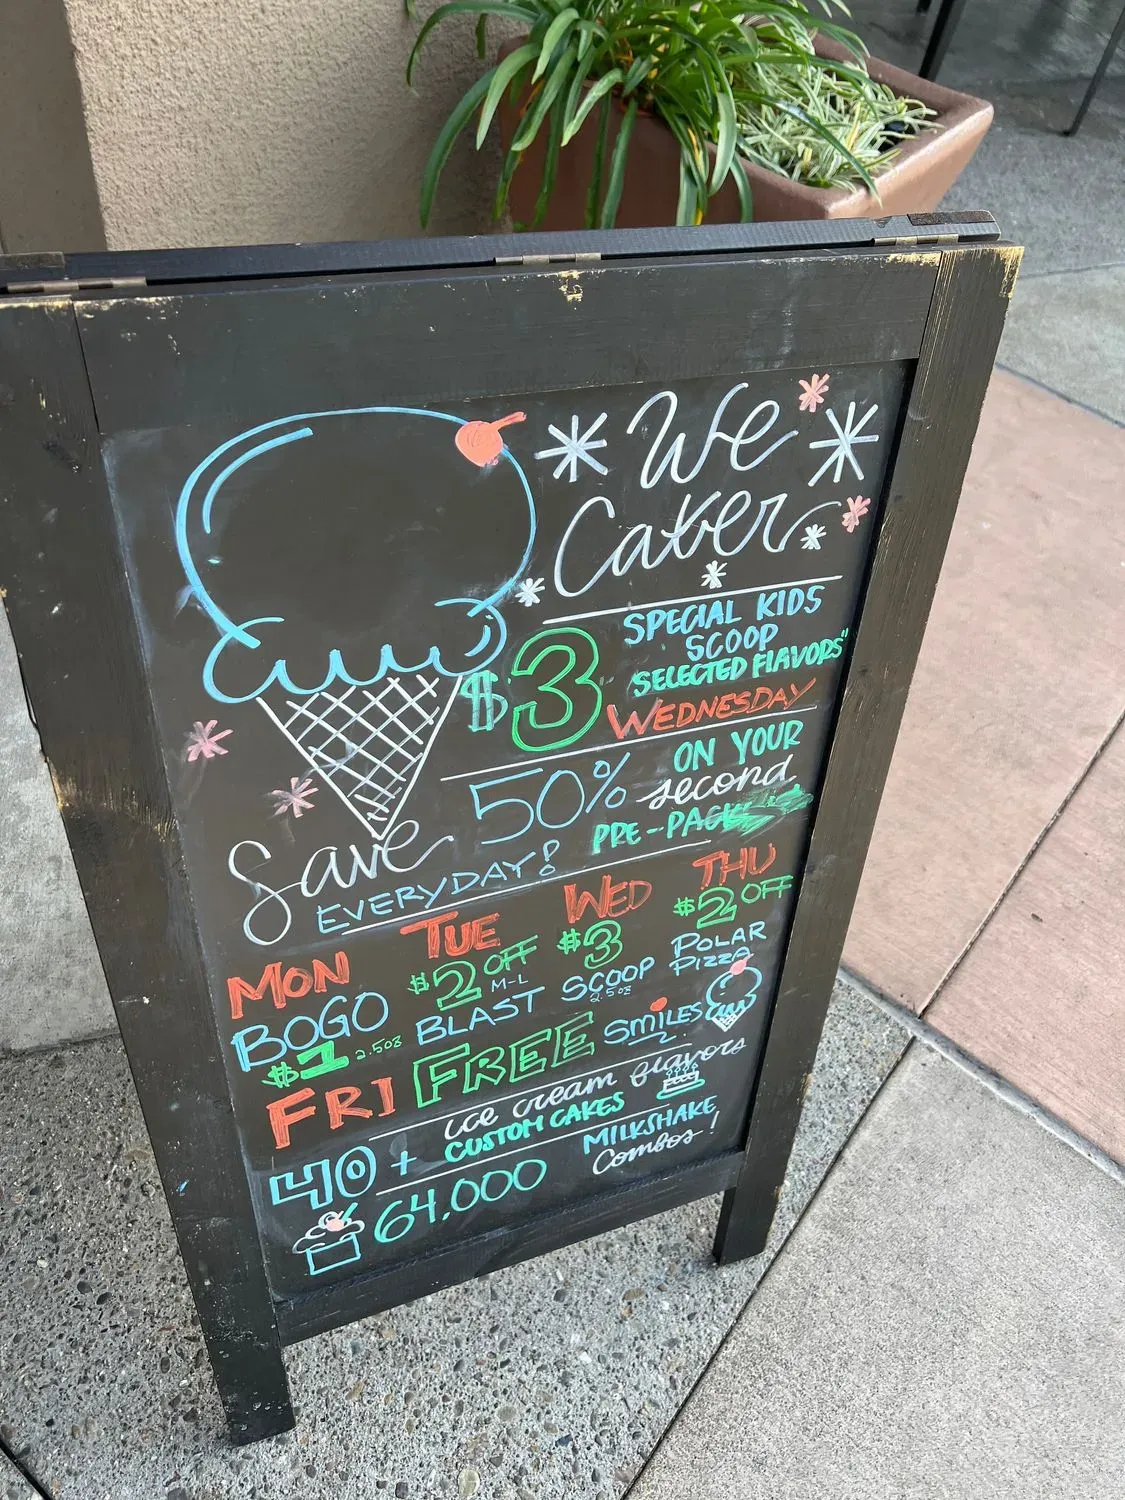 We
Cater
$3 SPECIAL KIDS
SCOOP
SELECTED FLAVORS"
WEDNESDAY
Save 50% ON YOUR
second
EVERYDAY! PRE-PACK
MON TUE WED THU
BOGO $2 OFF $3 $2 OFF
$1 2.5oz M-L SCOOP POLAR
BLAST 2.5oz PIZZA
FRI FREE SMILES
40 + ice cream flavors
CUSTOM CAKES
64,000 MILKSHAKE
Combos!